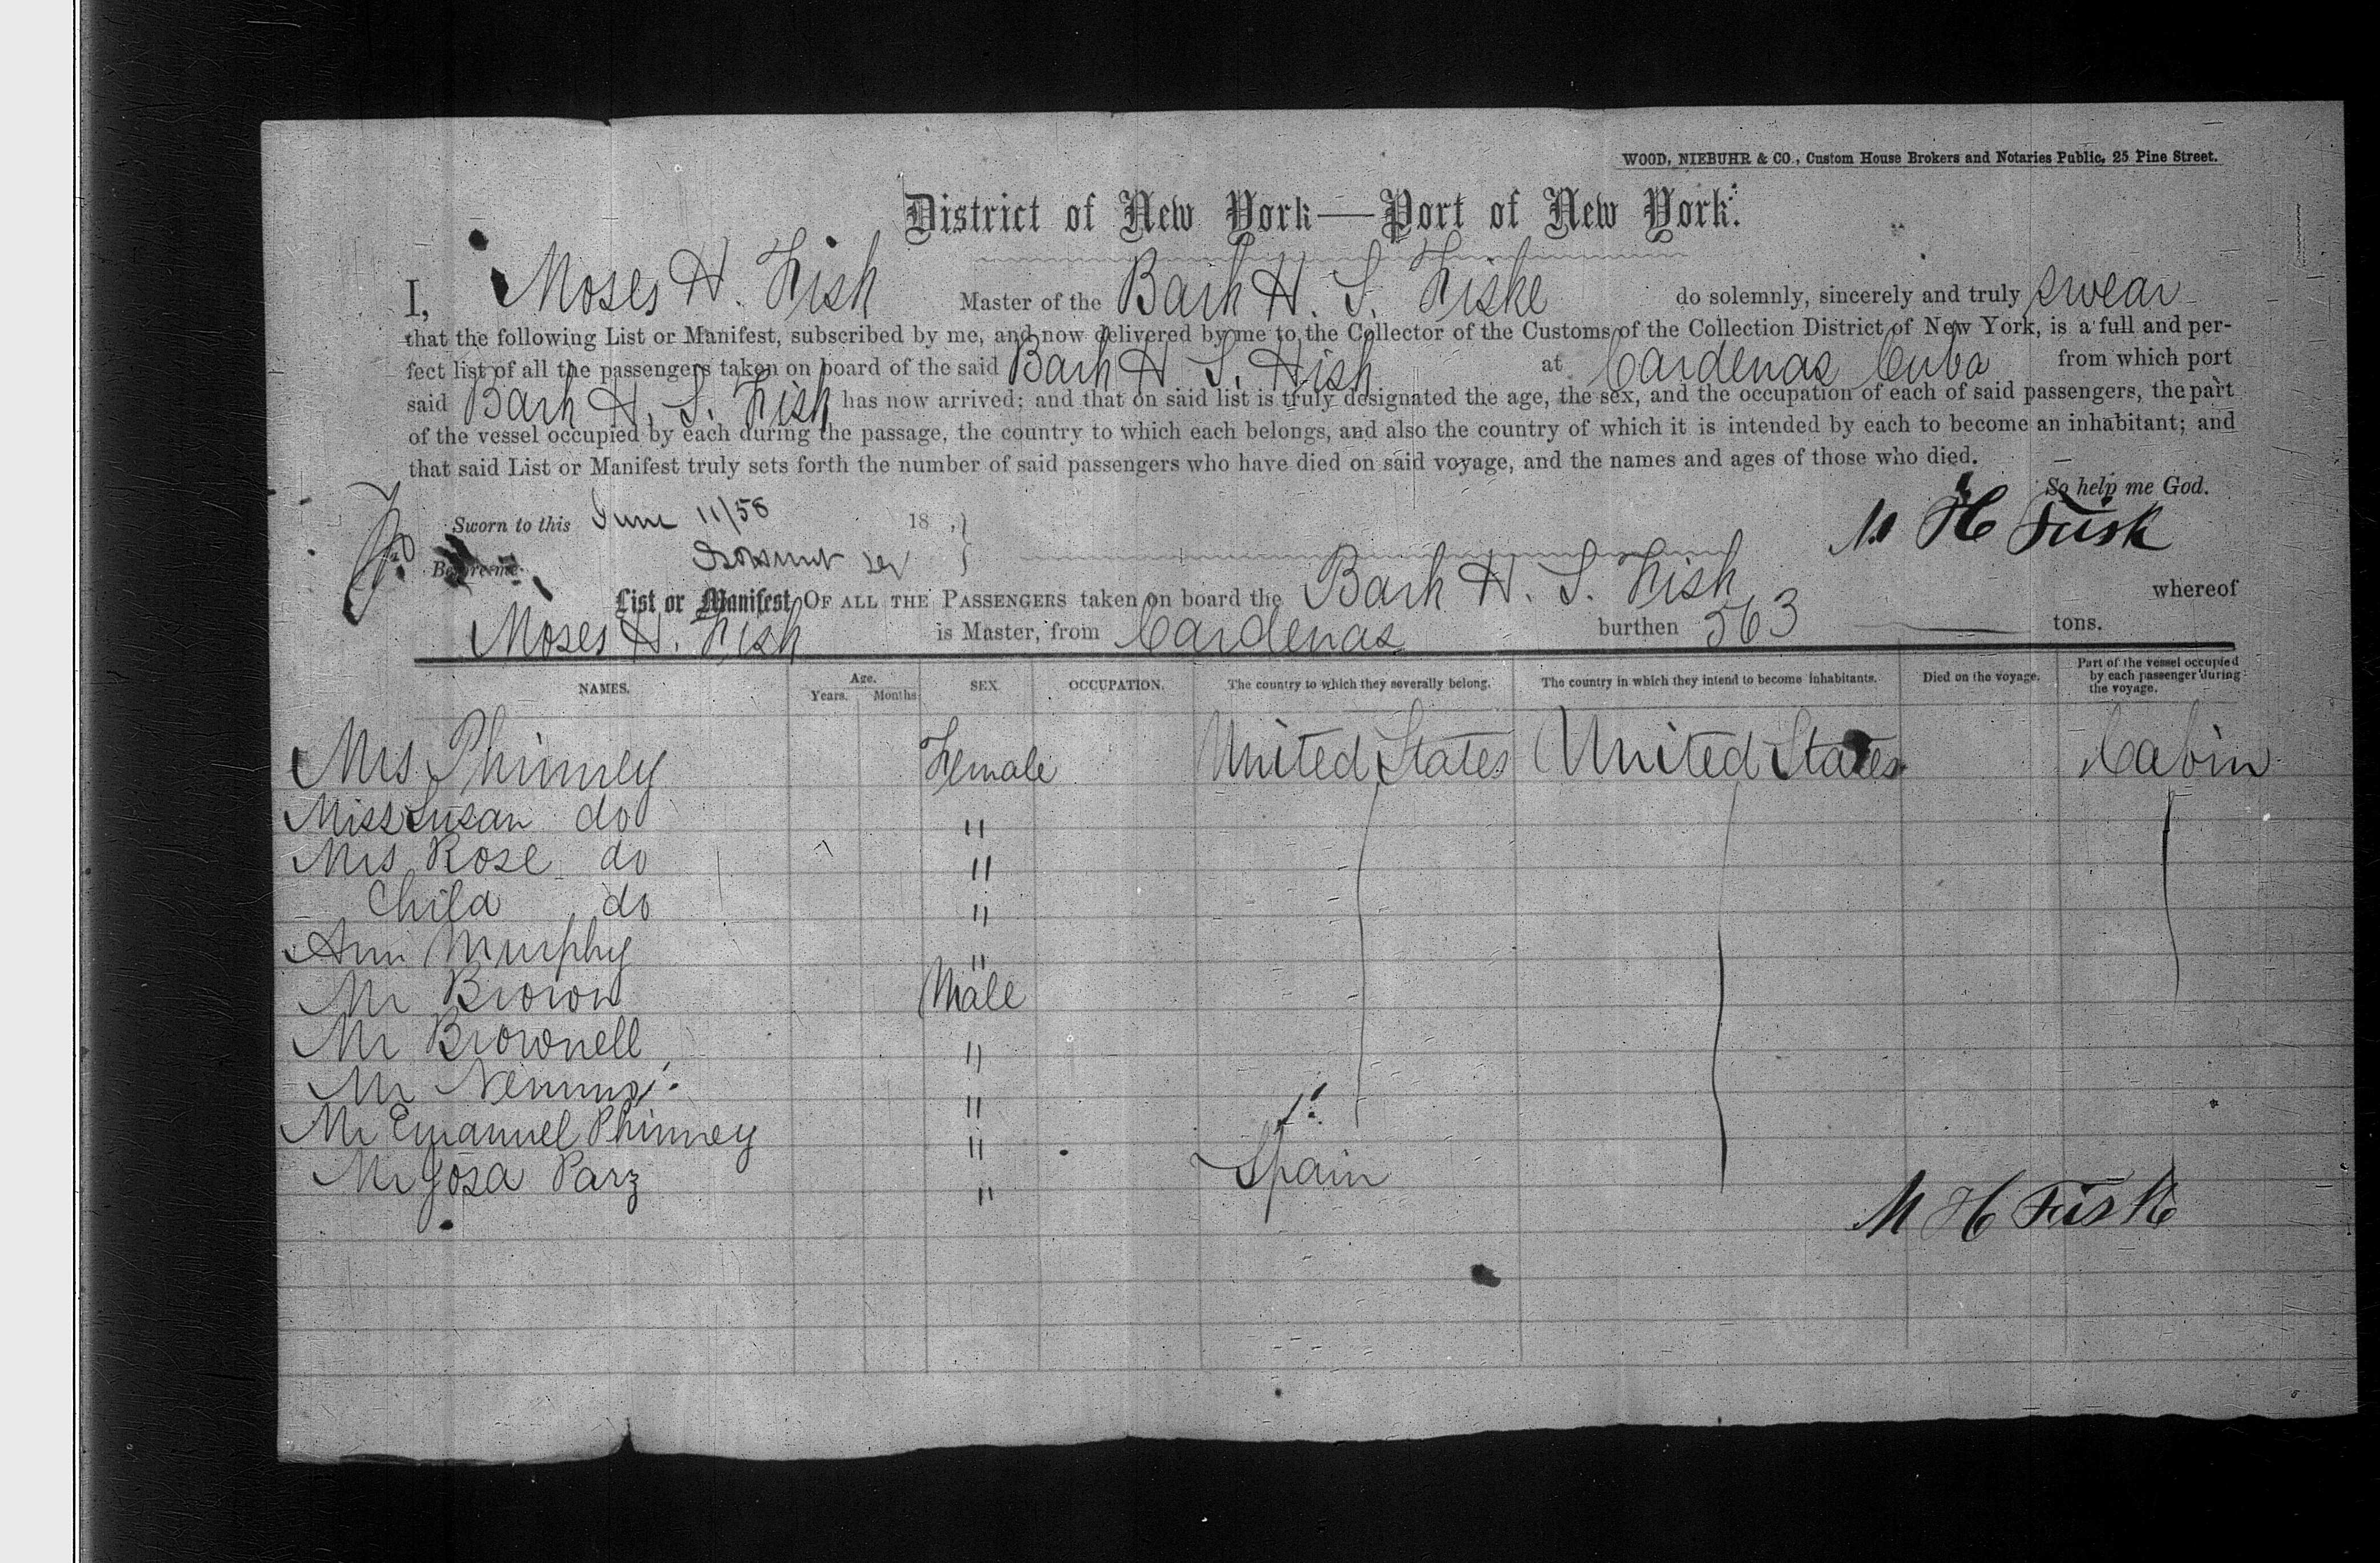 WOOD, NIEBUHR & CO., Custom House Brokers and Notaries Public, 25 Pine Street.
District of New York—Port of New York.
I, Moses H. Fish Master of the Bark H. S. Fiske do solemnly, sincerely and truly swear
that the following List or Manifest, subscribed by me, and now delivered by me to the Collector of the Customs of the Collection District of New York, is a full and per-
fect list of all the passengers taken on board of the said Bark H. S. Fish at Cardenas Cuba from which port
said Bark H. S. Fish has now arrived; and that on said list is truly designated the age, the sex, and the occupation of each of said passengers, the part
of the vessel occupied by each during the passage, the country to which each belongs, and also the country of which it is intended by each to become an inhabitant; and
that said List or Manifest truly sets forth the number of said passengers who have died on said voyage, and the names and ages of those who died.
So help me God.
Sworn to this June 11/58 18
M H Fisk
Before me
List or Manifest OF ALL THE PASSENGERS taken on board the Bark H. S. Fish whereof
Moses H. Fish is Master, from Cardenas burthen 563 tons.
NAMES. Age. Years. Months SEX. OCCUPATION. The country to which they severally belong. The country in which they intend to become inhabitants. Died on the voyage. Part of the vessel occupied by each passenger during the voyage.
Mrs Phinney Female United States United States Cabin
Miss Susan do "
Mrs Rose do "
Child do "
Ann Murphy "
Mr Brown Male
Mr Brownell "
Mr "
Mr Emanuel Phinney "
Mr Josa Parz " Spain
M H Fisk